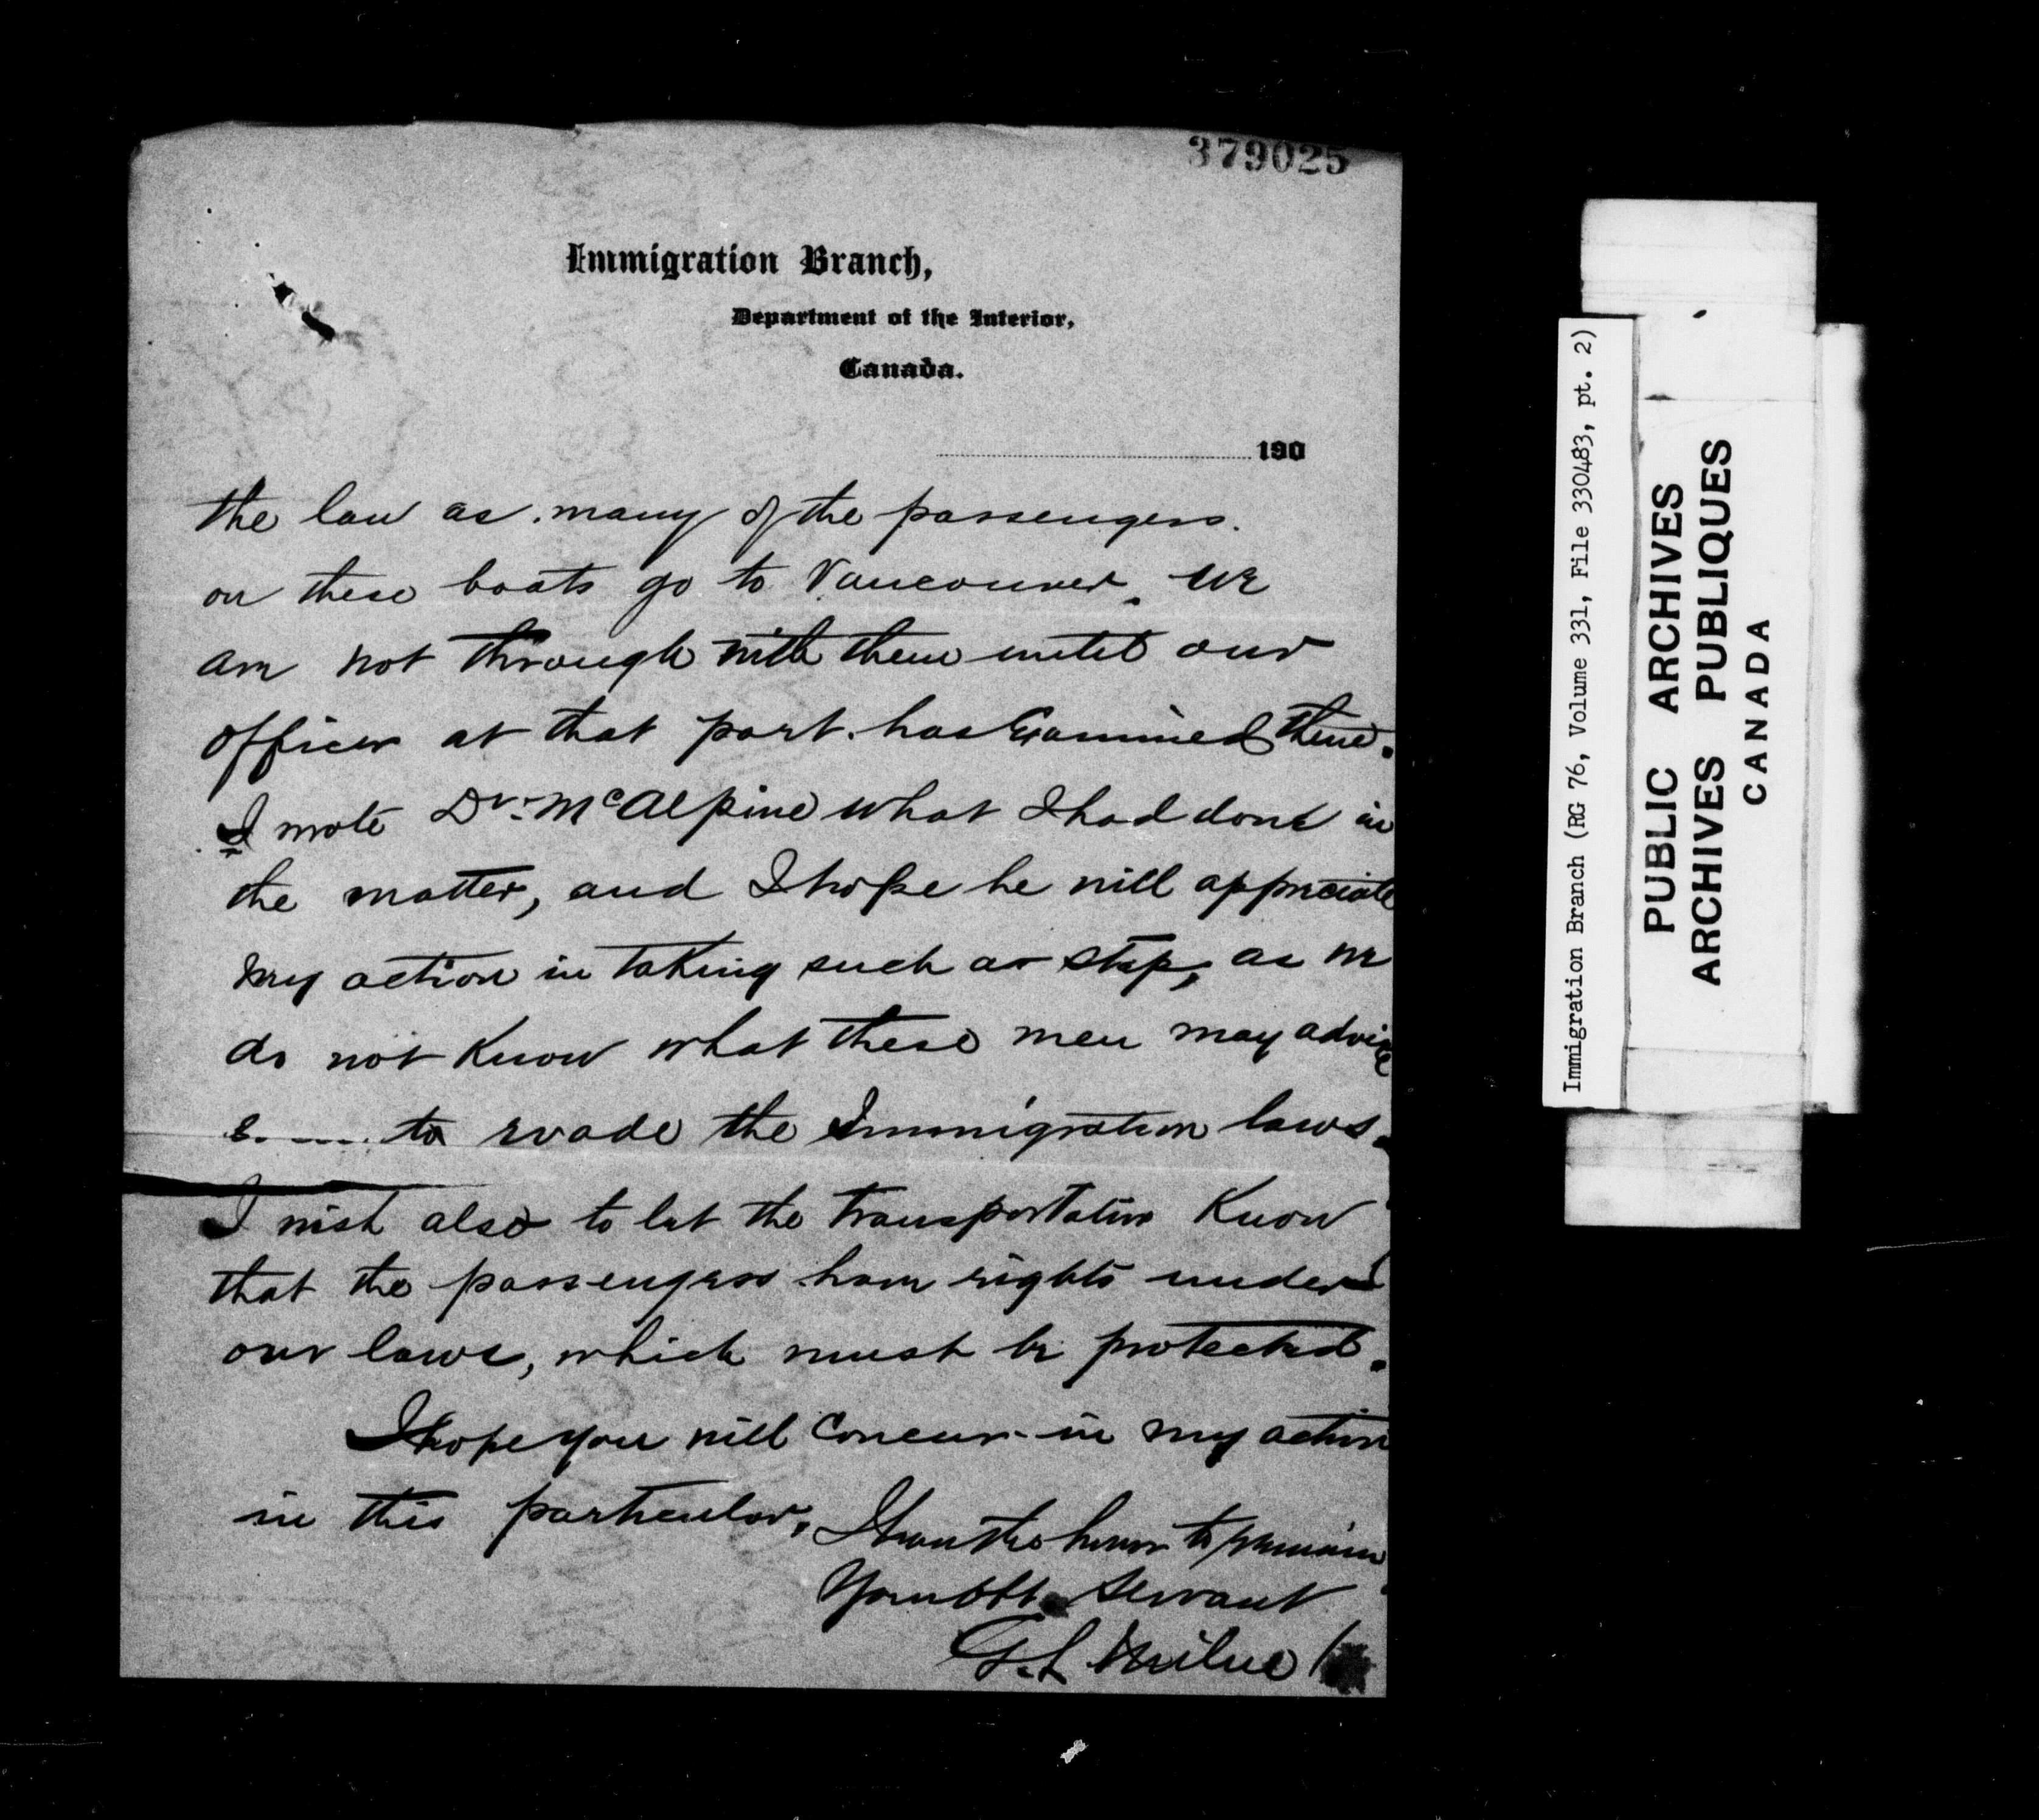 379025
Immigration Branch,
Department of the Interior,
Canada.
190
the law as many of the passengers.
on these boats go to Vancouver. We
are not through with them until our
officer at that port. has Examined them.
I wrote Dr. McAlpine what I had done in
the matter, and I hope he will appreciate
my action in taking such a step, as we
do not know what these men may advise
to evade the Immigration laws.
I wish also to let the transportation Know
that the passengers have rights under
our laws, which must be protected.
I hope you will Concur in my action
in this particular, I have the honor to remain
Your obt. Servant
G.L Milne
Immigration Branch (RG 76, Volume 331, File 330483, pt. 2)
PUBLIC ARCHIVES
ARCHIVES PUBLIQUES
CANADA